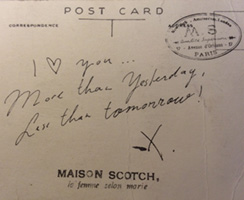 POST CARD
CORRESPONDENCE
M.S
PARIS
I ♡ you...
More than Yesterday,
Less than tomorrow!
X.
MAISON SCOTCH,
la femme selon marie